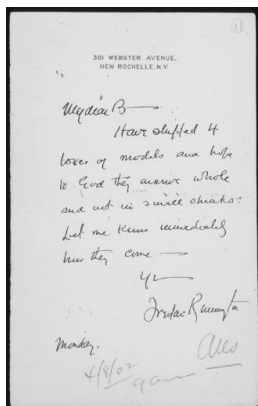 301 WEBSTER AVENUE.
NEW ROCHELLE, N.Y.
My dear B—
Have shipped 4
boxes of models and hope
to God they arrive whole
and not in small chunks.
Let me know immediately
how they come —
Yr—
Frederic Remington
Monday.
4/8/02
Ans